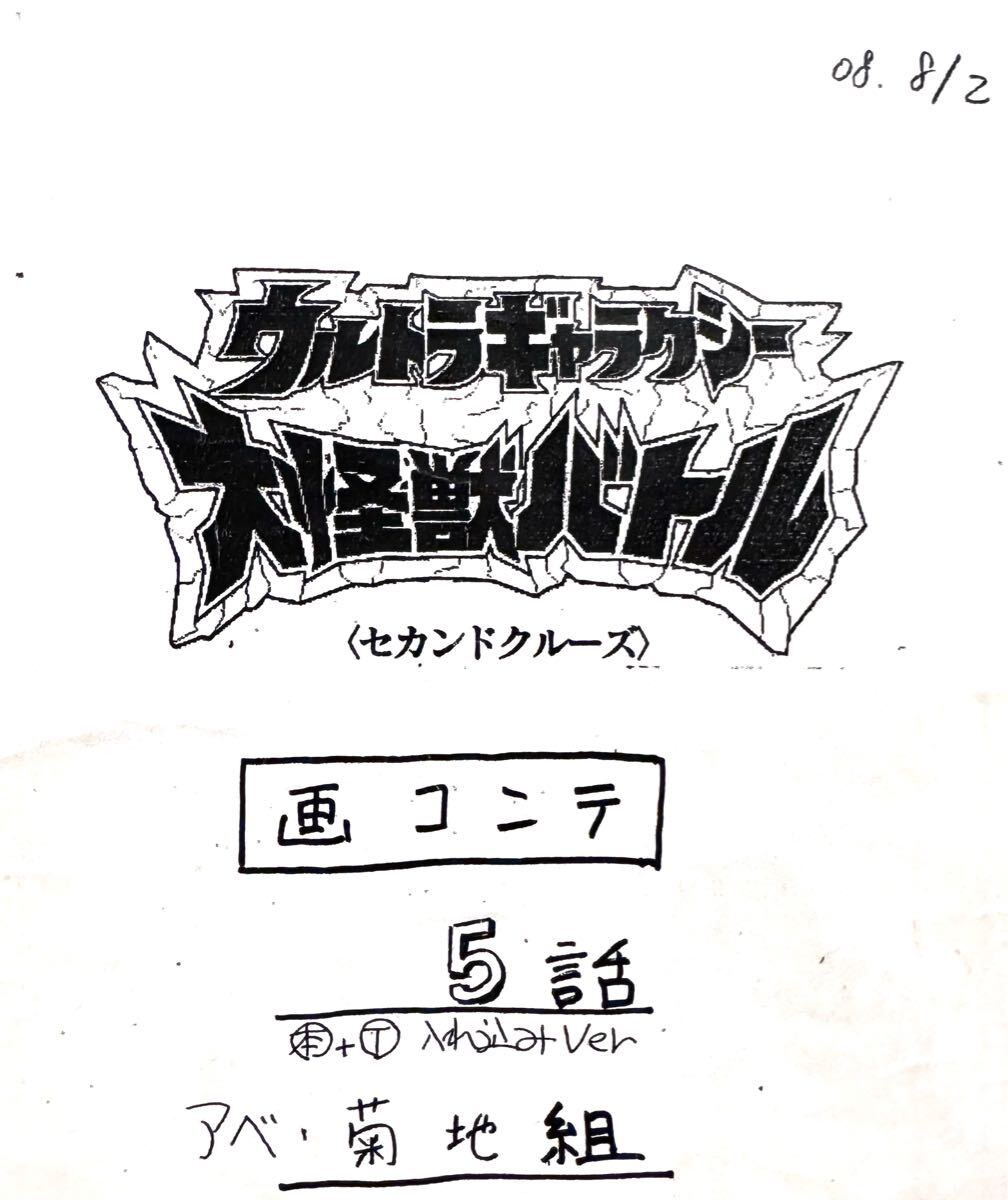 08. 8/2
ウルトラギャラクシー
大怪獣バトル
〈セカンドクルーズ〉
画コンテ
5話
㊍+Ⓣ 入れ込みVer
アベ・菊地組